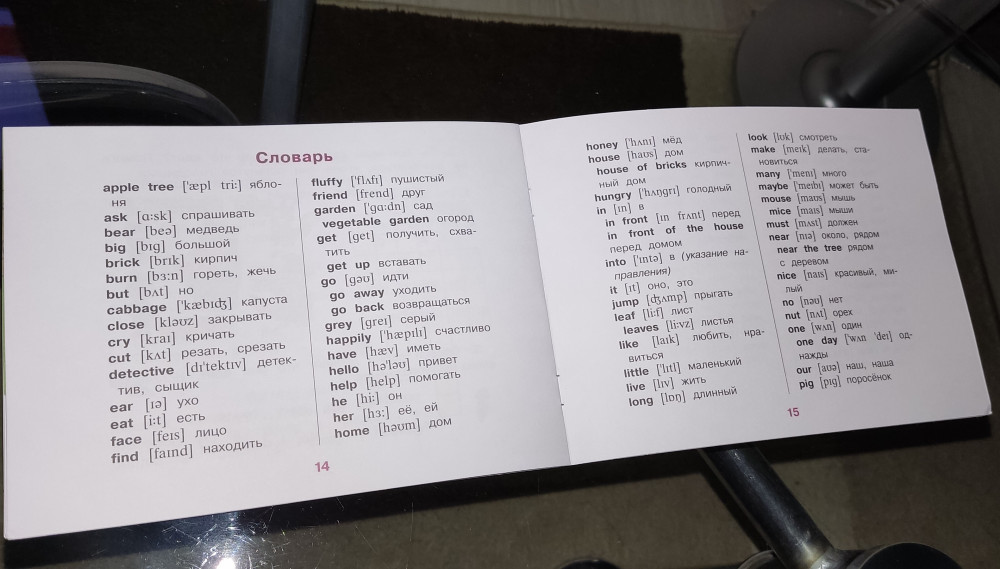 Словарь
apple tree ['æpl tri:] ябло-
ня
ask [ɑ:sk] спрашивать
bear [beə] медведь
big [bɪg] большой
brick [brɪk] кирпич
burn [bɜ:n] гореть, жечь
but [bʌt] но
cabbage ['kæbɪʤ] капуста
close [kləʊz] закрывать
cry [kraɪ] кричать
cut [kʌt] резать, срезать
detective [dɪ'tektɪv] детек-
тив, сыщик
ear [ɪə] ухо
eat [i:t] есть
face [feɪs] лицо
find [faɪnd] находить
fluffy ['flʌfɪ] пушистый
friend [frend] друг
garden ['gɑ:dn] сад
vegetable garden огород
get [get] получить, схва-
тить
get up вставать
go [gəʊ] идти
go away уходить
go back возвращаться
grey [greɪ] серый
happily ['hæpɪlɪ] счастливо
have [hæv] иметь
hello [hə'ləʊ] привет
help [help] помогать
he [hi:] он
her [hɜ:] её, ей
home [həʊm] дом
14
honey ['hʌnɪ] мёд
house [haʊs] дом
house of bricks кирпич-
ный дом
hungry ['hʌŋgrɪ] голодный
in [ɪn] в
in front [ɪn frʌnt] перед
in front of the house
перед домом
into ['ɪntə] в (указание на-
правления)
it [ɪt] оно, это
jump [ʤʌmp] прыгать
leaf [li:f] лист
leaves [li:vz] листья
like [laɪk] любить, нра-
виться
little ['lɪtl] маленький
live [lɪv] жить
long [lɒŋ] длинный
look [lʊk] смотреть
make [meɪk] делать, ста-
новиться
many ['menɪ] много
maybe ['meɪbɪ] может быть
mouse [maʊs] мышь
mice [maɪs] мыши
must [mʌst] должен
near [nɪə] около, рядом
near the tree рядом
с деревом
nice [naɪs] красивый, ми-
лый
no [nəʊ] нет
nut [nʌt] орех
one [wʌn] один
one day [wʌn 'deɪ] од-
нажды
our [aʊə] наш, наша
pig [pɪg] поросёнок
15